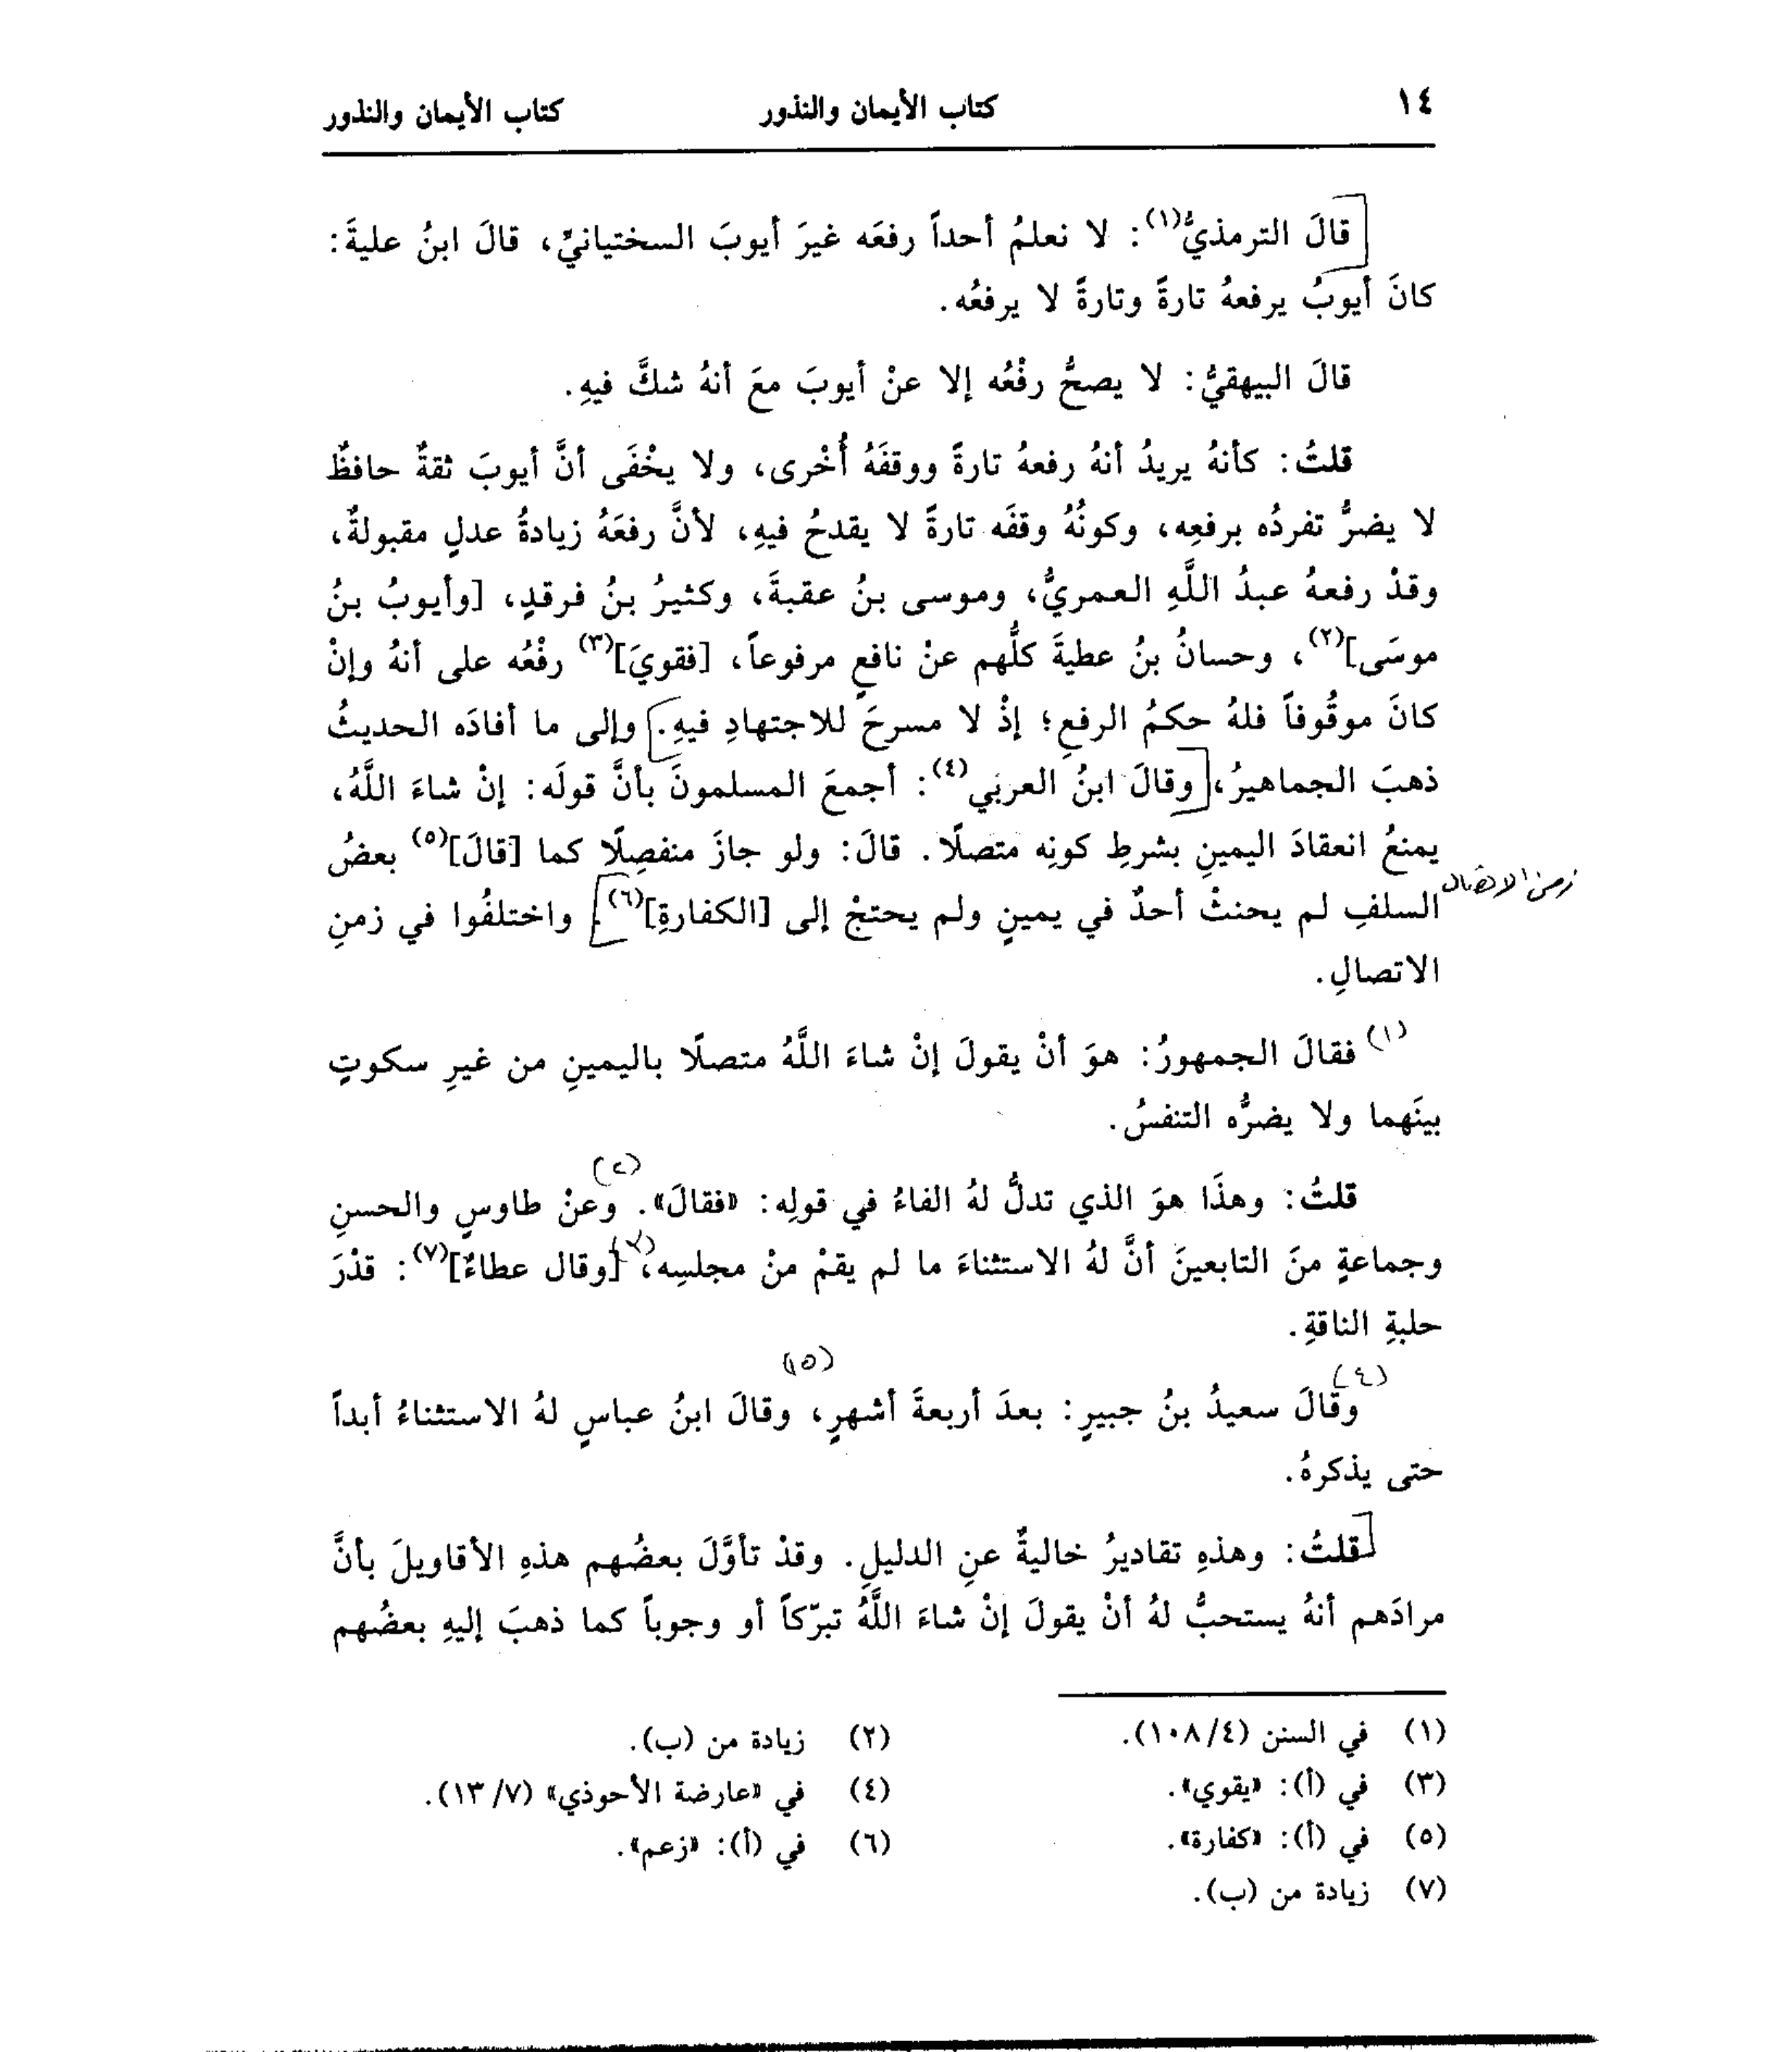 ١٤ كتاب الأيمان والنذور كتاب الأيمان والنذور
قالَ الترمذيُّ(١): لا نعلمُ أحداً رفعَه غيرَ أيوبَ السختيانيِّ، قالَ ابنُ عليةَ:
كانَ أيوبُ يرفعهُ تارةً وتارةً لا يرفعُه.
قالَ البيهقيُّ: لا يصحُّ رفْعُه إلا عنْ أيوبَ معَ أنهُ شكَّ فيهِ.
قلتُ: كأنهُ يريدُ أنهُ رفعهُ تارةً ووقفَهُ أُخْرى، ولا يخْفَى أنَّ أيوبَ ثقةٌ حافظٌ
لا يضرُّ تفردُه برفعِه، وكونُهُ وقفَه تارةً لا يقدحُ فيهِ، لأنَّ رفعَهُ زيادةُ عدلٍ مقبولةٌ،
وقدْ رفعهُ عبدُ اللَّهِ العمريُّ، وموسى بنُ عقبةَ، وكثيرُ بنُ فرقدٍ، [وأيوبُ بنُ
موسَى](٢)، وحسانُ بنُ عطيةَ كلُّهم عنْ نافعٍ مرفوعاً، [فقويَ](٣) رفْعُه على أنهُ وإنْ
كانَ موقُوفاً فلهُ حكمُ الرفعِ؛ إذْ لا مسرحَ للاجتهادِ فيهِ. وإلى ما أفادَه الحديثُ
ذهبَ الجماهيرُ، وقالَ ابنُ العربَي(٤): أجمعَ المسلمونَ بأنَّ قولَه: إنْ شاءَ اللَّهُ،
يمنعُ انعقادَ اليمينِ بشرطِ كونِه متصلًا. قالَ: ولو جازَ منفصِلًا كما [قالَ](٥) بعضُ
زمن الاتصال
السلفِ لم يحنثْ أحدٌ في يمينٍ ولم يحتجْ إلى [الكفارةِ](٦). واختلفُوا في زمنِ
الاتصالِ.
(١) فقالَ الجمهورُ: هوَ أنْ يقولَ إنْ شاءَ اللَّهُ متصلًا باليمينِ من غيرِ سكوتٍ
بينَهما ولا يضرُّه التنفسُ.
(٢)
قلتُ: وهذَا هوَ الذي تدلُّ لهُ الفاءُ في قولِه: «فقالَ». وعنْ طاوسٍ والحسنِ
(٣)
وجماعةٍ منَ التابعينَ أنَّ لهُ الاستثناءَ ما لم يقمْ منْ مجلسِه، [وقال عطاءٌ](٧): قدْرَ
حلبةِ الناقةِ.
(٤) (٥)
وقالَ سعيدُ بنُ جبيرٍ: بعدَ أربعةَ أشهرٍ، وقالَ ابنُ عباسٍ لهُ الاستثناءُ أبداً
حتى يذكرهُ.
قلتُ: وهذهِ تقاديرُ خاليةٌ عنِ الدليلِ. وقدْ تأوَّلَ بعضُهم هذهِ الأقاويلَ بأنَّ
مرادَهم أنهُ يستحبُّ لهُ أنْ يقولَ إنْ شاءَ اللَّهُ تبرّكاً أو وجوباً كما ذهبَ إليهِ بعضُهم
(١) في السنن (٤/١٠٨). (٢) زيادة من (ب).
(٣) في (أ): «يقوي». (٤) في «عارضة الأحوذي» (٧/١٣).
(٥) في (أ): «كفارة». (٦) في (أ): «زعم».
(٧) زيادة من (ب).